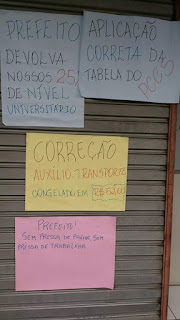 PREFEITO
DEVOLVA
NOSSOS 25%
DE NÍVEL
UNIVERSITÁRIO
APLICAÇÃO
CORRETA DA
TABELA DO
PCCS
CORREÇÃO
AUXÍLIO-TRANSPORTE
CONGELADO EM
PREFEITO!
SEM PRESSA DE PAGAR, SEM
PRESSA DE TRABALHAR